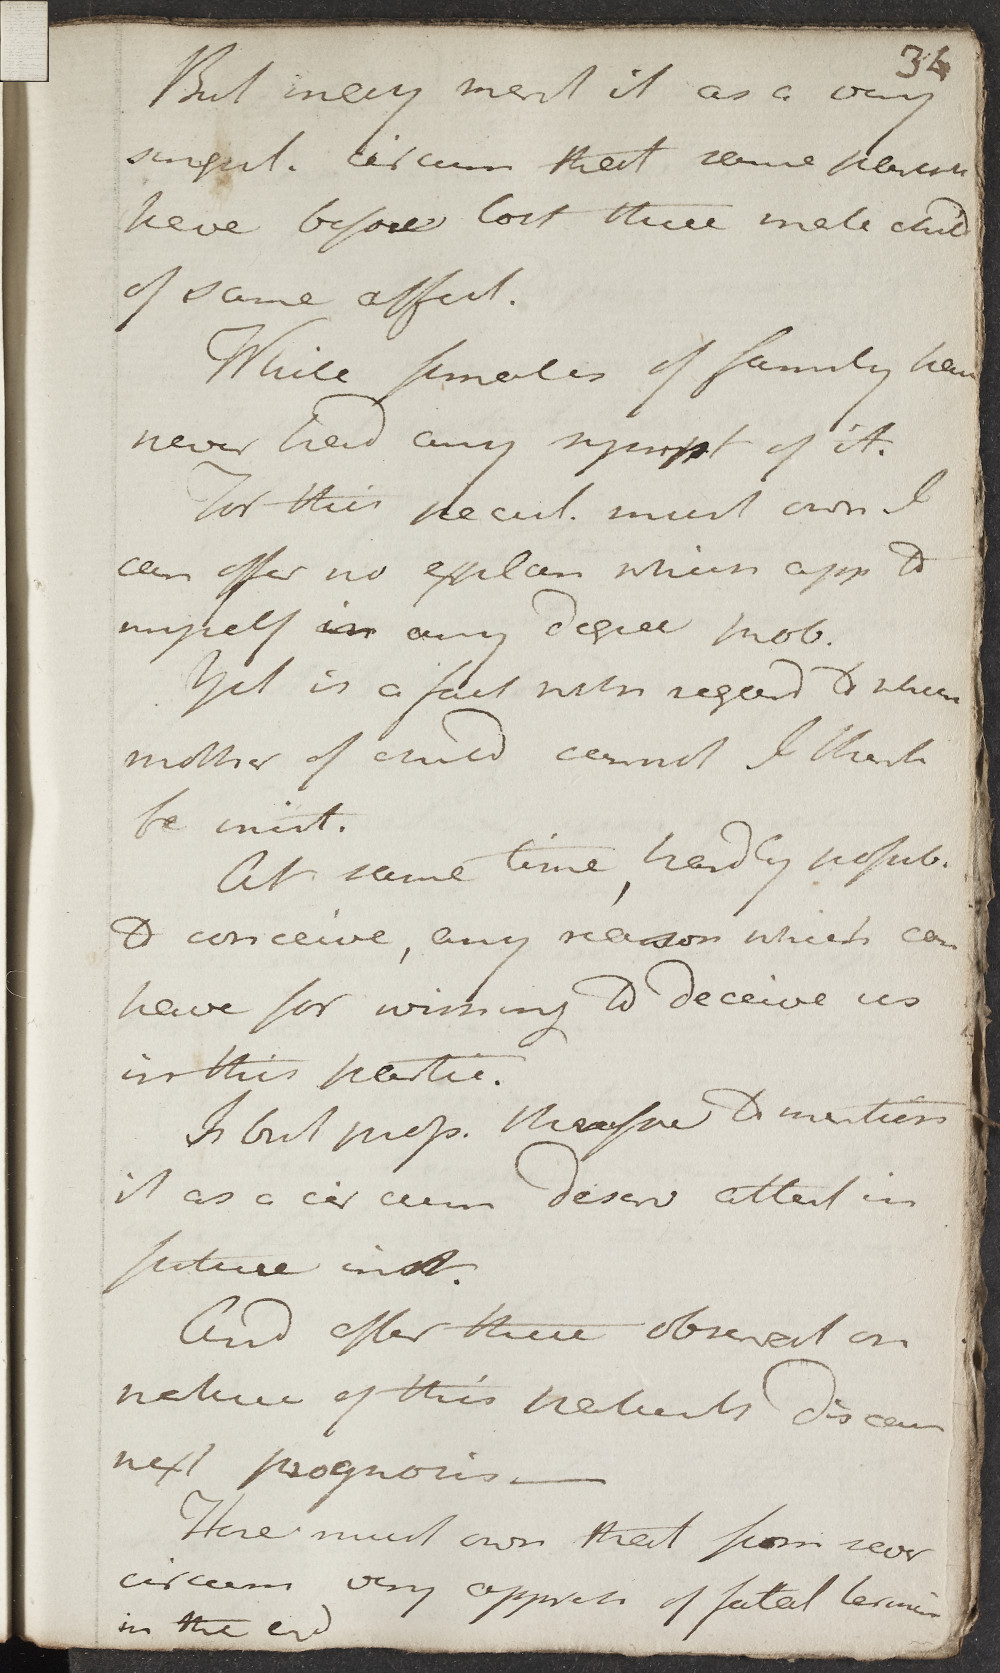 34
But may ment it as a very
singul. circum that same parents
have before lost three male child
of same affect.
While females of family have
never had any sympt of it.
For this pecul. must own I
can offer no explan which app to
myself in any degree prob.
Yet is a fact with regard to which
mother of child cannot I think
be mist.
At same time, hardly possib.
to conceive, any reason which can
have for wishing to deceive us
in this partic.
Is but prop. therefore to mention
it as a circum deserv attent in
future inst.
And after these observat on
nature of this patients disease
next prognosis —
Here must own that from sever
circum very appreh of fatal termin
in the end